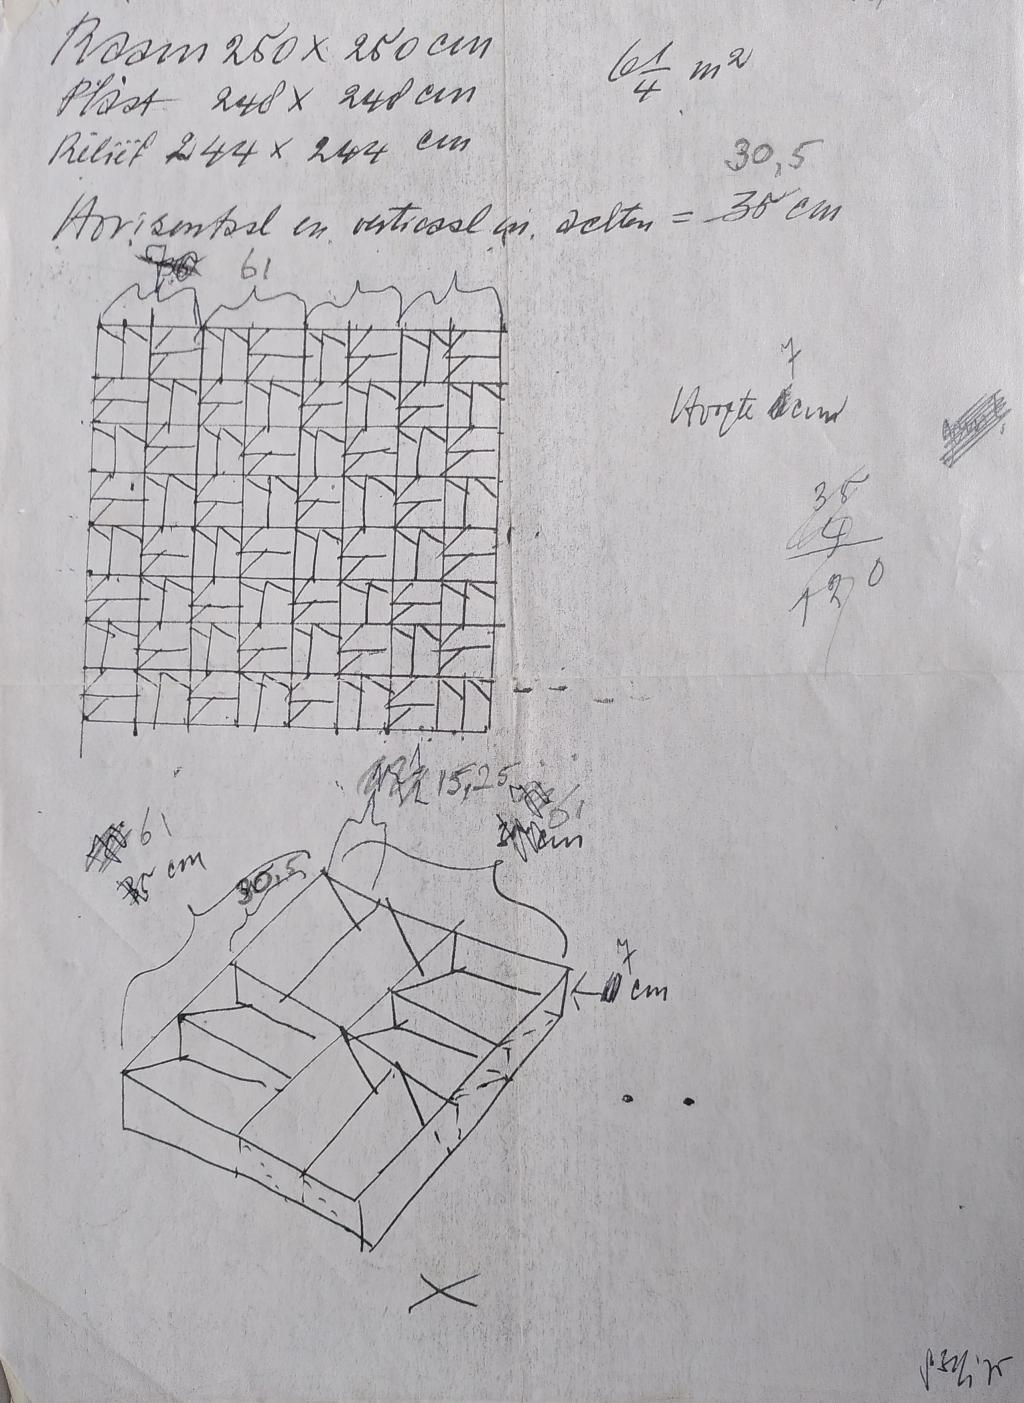 Raam 250 x 250 cm
Plaat 248 x 248 cm
Reliëf 244 x 244 cm
6 1/4 m²
30,5
Horisontaal en verticaal in achten = 35 cm
61
7
Hoogte cm
35
4
120
15,25
61
cm
61
35 cm
30,5
7
cm